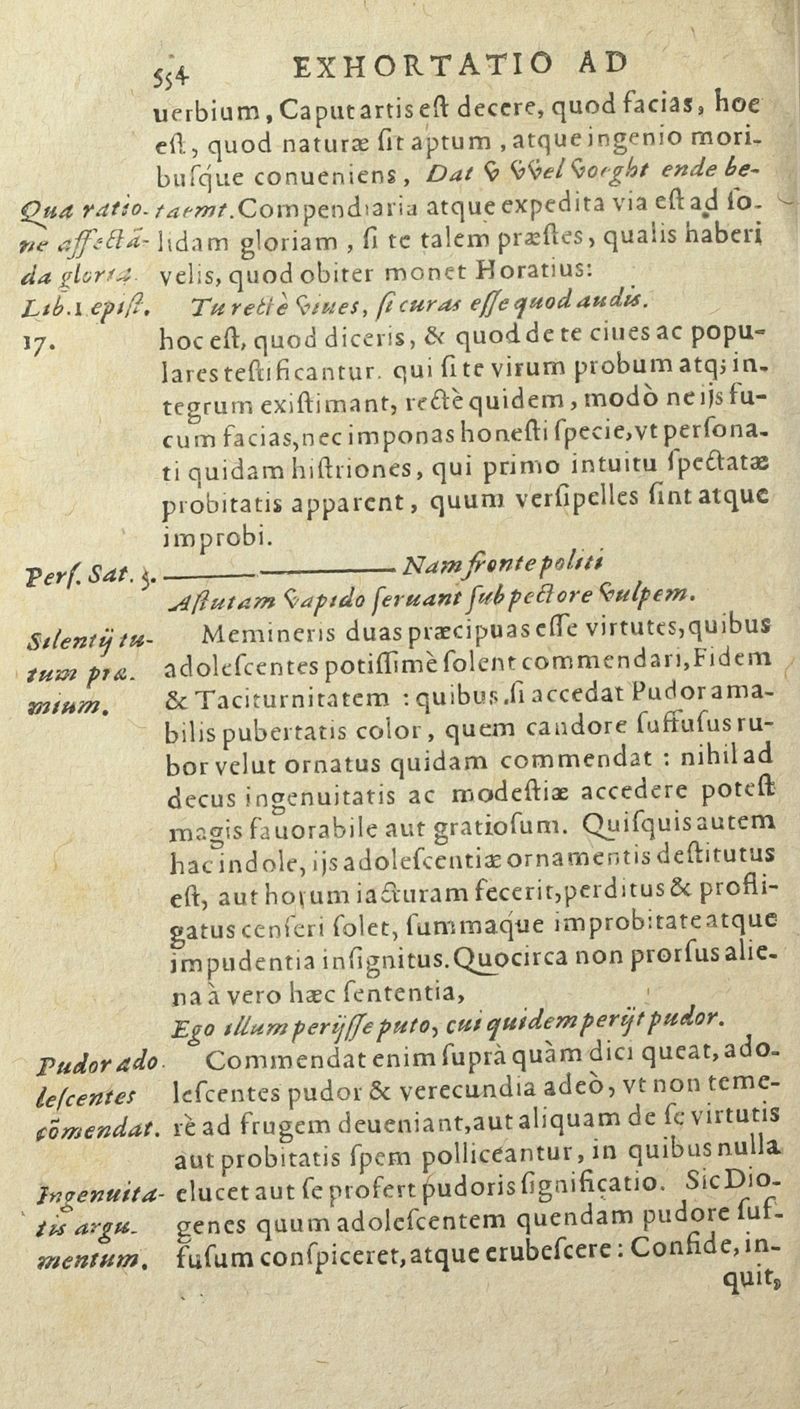 554 EXHORTATIO AD
uerbium, Caput artis est decere, quod facias, hoc
est, quod naturæ sit aptum, atque ingenio mori-
busque conueniens, Dat v vvel voeght ende be-
Qua ratio- taemt. Compendiaria atque expedita via est ad so-
ne affectã- lidam gloriam, si te talem præstes, qualis haberi
da gloria. velis, quod obiter monet Horatius:
Lib.1 epist. Tu rectè viues, si curas esse quod audis.
17. hoc est, quod diceris, & quod de te ciues ac popu-
lares testificantur. qui si te virum probum atq; in-
tegrum existimant, rectè quidem, modò ne ijs fu-
cum facias, nec imponas honesti specie, vt persona-
ti quidam histriones, qui primo intuitu spectatæ
probitatis apparent, quum versipelles sint atque
improbi.
Pers. Sat. 5. Nam fronte politi
Astutam vapido seruant sub pectore vulpem.
Silentij tu- Memineris duas præcipuas esse virtutes, quibus
tum præ- adolescentes potissimè solent commendari, Fidem
mium. & Taciturnitatem: quibus si accedat Pudor ama-
bilis pubertatis color, quem candore suffusus ru-
bor velut ornatus quidam commendat: nihil ad
decus ingenuitatis ac modestiæ accedere potest
magis fauorabile aut gratiosum. Quisquis autem
hac indole, ijs adolescentiæ ornamentis destitutus
est, aut horum iacturam fecerit, perditus & profli-
gatus censeri solet, summaque improbitate atque
impudentia insignitus. Quocirca non prorsus alie-
na à vero hæc sententia,
Ego illum perijsse puto, cui quidem perijt pudor.
Pudor ado- Commendat enim suprà quàm dici queat, ado-
lescentes lescentes pudor & verecundia adeò, vt non teme-
cõmendat. rè ad frugem deueniant, aut aliquam de se virtutis
aut probitatis spem polliceantur, in quibus nulla
Ingenuita- elucet aut se profert pudoris significatio. Sic Dio-
tis argu- genes quum adolescentem quendam pudore suf-
mentum. fusum conspiceret, atque erubescere: Confide, in-
quit,